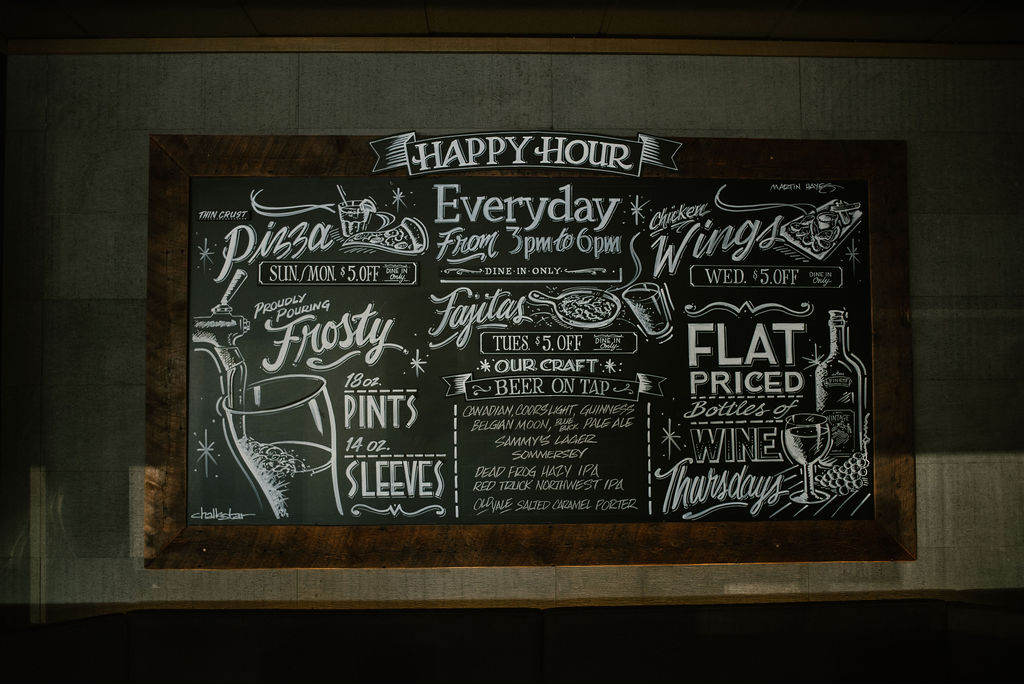 HAPPY HOUR
Everyday
From 3pm to 6pm
DINE IN ONLY
THIN CRUST
Pizza
SUN./MON. $5.OFF DINE IN Only
PROUDLY
POURING
Frosty
18oz.
PINTS
14 oz.
SLEEVES
chalkstar
Fajitas
TUES. $5.OFF DINE IN Only
OUR CRAFT
BEER ON TAP
CANADIAN, COORS LIGHT, GUINNESS
BELGIAN MOON, BLUE BUCK PALE ALE
SAMMY'S LAGER
SOMMERSBY
DEAD FROG HAZY IPA
RED TRUCK NORTHWEST IPA
OLD YALE SALTED CARAMEL PORTER
MARTIN HAYES
Chicken
Wings
WED. $5.OFF DINE IN Only
FLAT
PRICED
Bottles of
WINE
Thursdays
VINTAGE